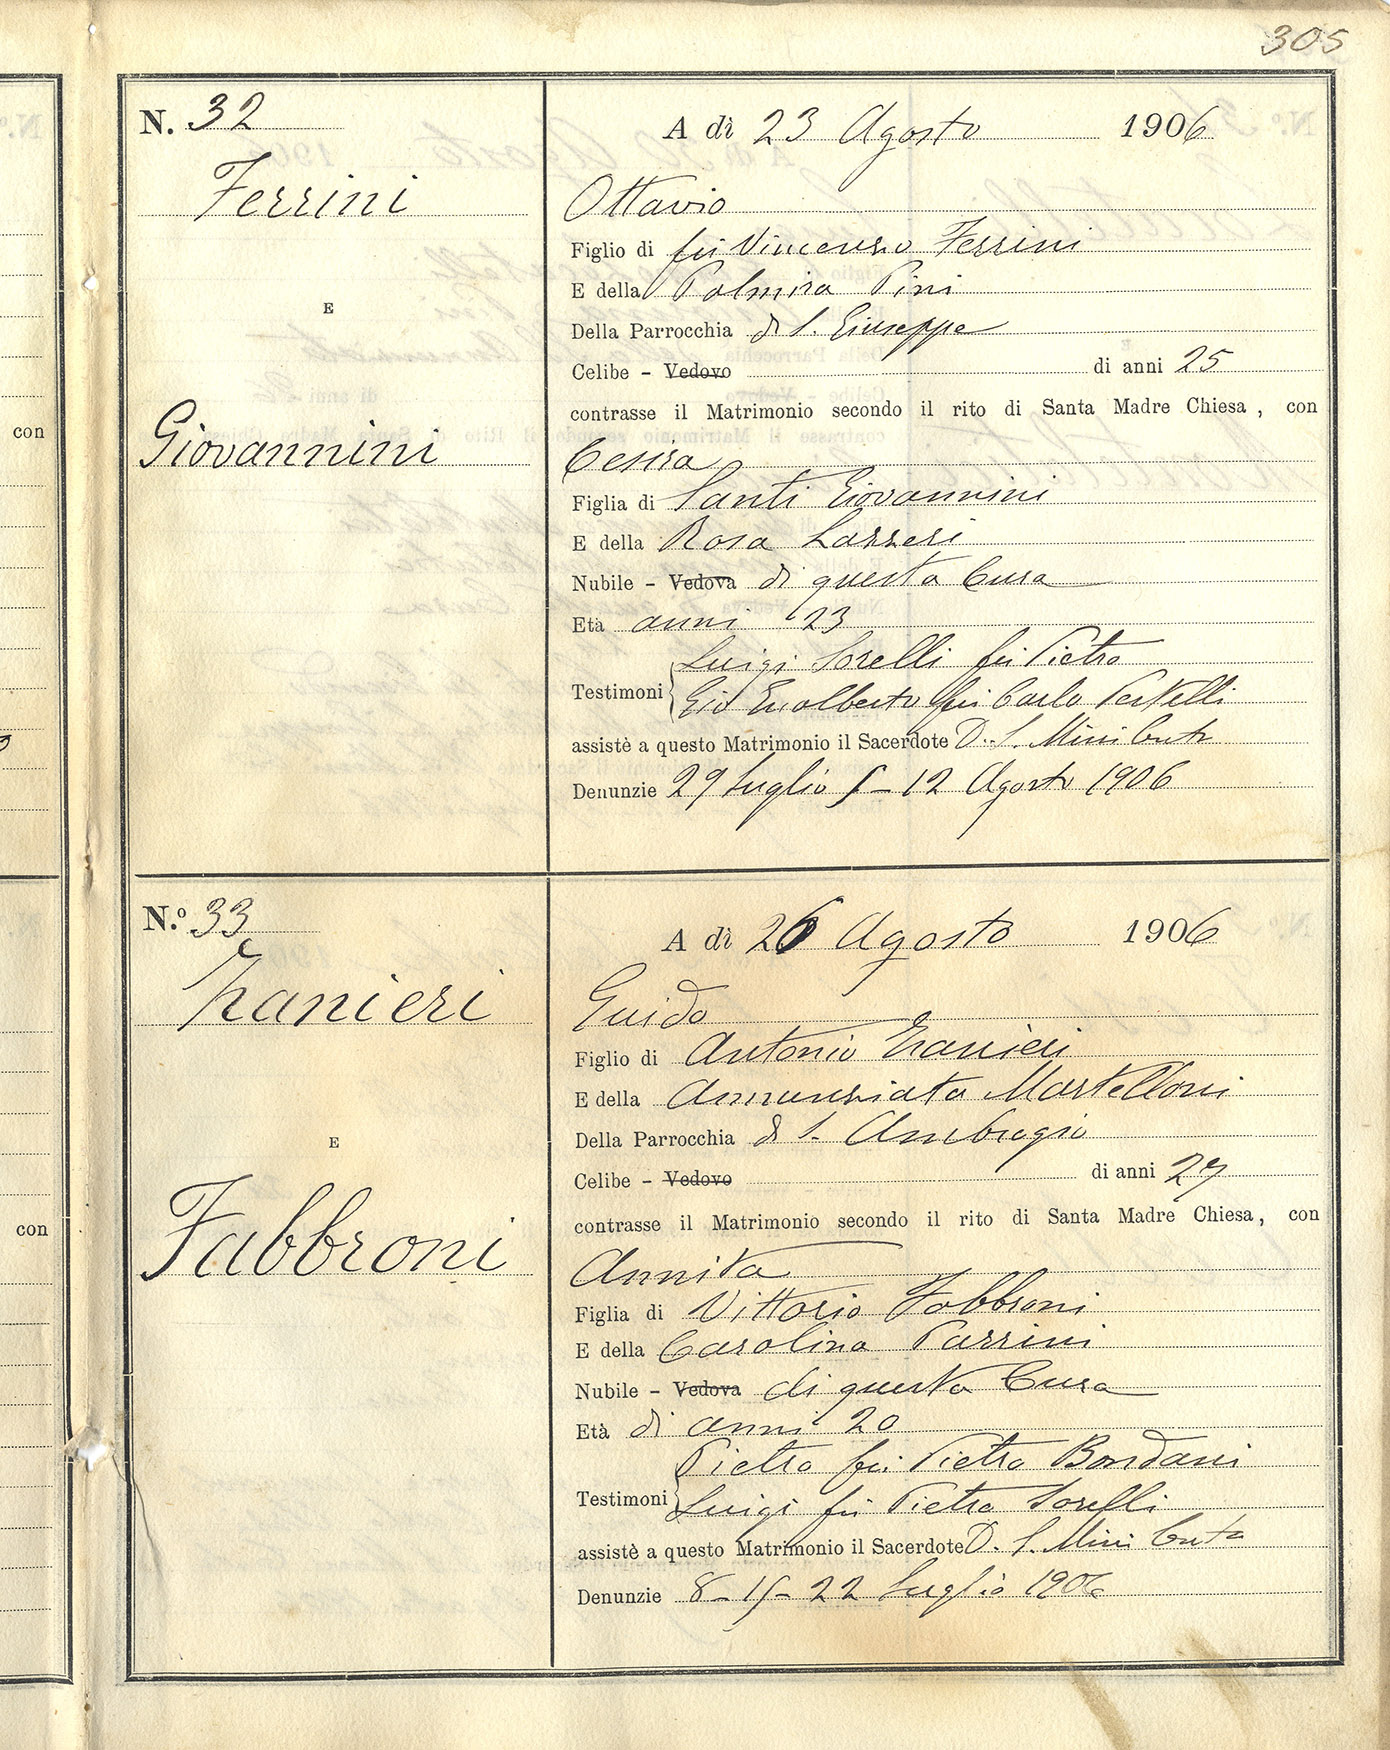 305
N. 32
A dì 23 Agosto 1906
Ferrini
E
Giovannini
Ottavio
Figlio di fu Vincenzo Ferrini
E della Palmira Pini
Della Parrocchia di S. Giuseppe
Celibe - Vedovo di anni 25
contrasse il Matrimonio secondo il rito di Santa Madre Chiesa, con
Cesira
Figlia di Santi Giovannini
E della Rosa Lazzeri
Nubile - Vedova di questa Cura
Età anni 23
Luigi Sorelli fu Pietro
Testimoni
Gio fu Carlo
assistè a questo Matrimonio il Sacerdote D. S. Mini
Denunzie 29 Luglio 5 - 12 Agosto 1906
N.º 33
A dì 26 Agosto 1906
Ranieri
E
Fabbroni
Guido
Figlio di Antonio
E della Annunziata Martelloni
Della Parrocchia di S. Ambrogio
Celibe - Vedovo di anni 27
contrasse il Matrimonio secondo il rito di Santa Madre Chiesa, con
Annita
Figlia di Vittorio Fabbroni
E della Carolina Parrini
Nubile - Vedova di questa Cura
Età di anni 20
Pietro fu Pietro Bondani
Testimoni
Luigi fu Pietro Sorelli
assistè a questo Matrimonio il Sacerdote D. S. Mini
Denunzie 8 - 15 - 22 Luglio 1906
con
con